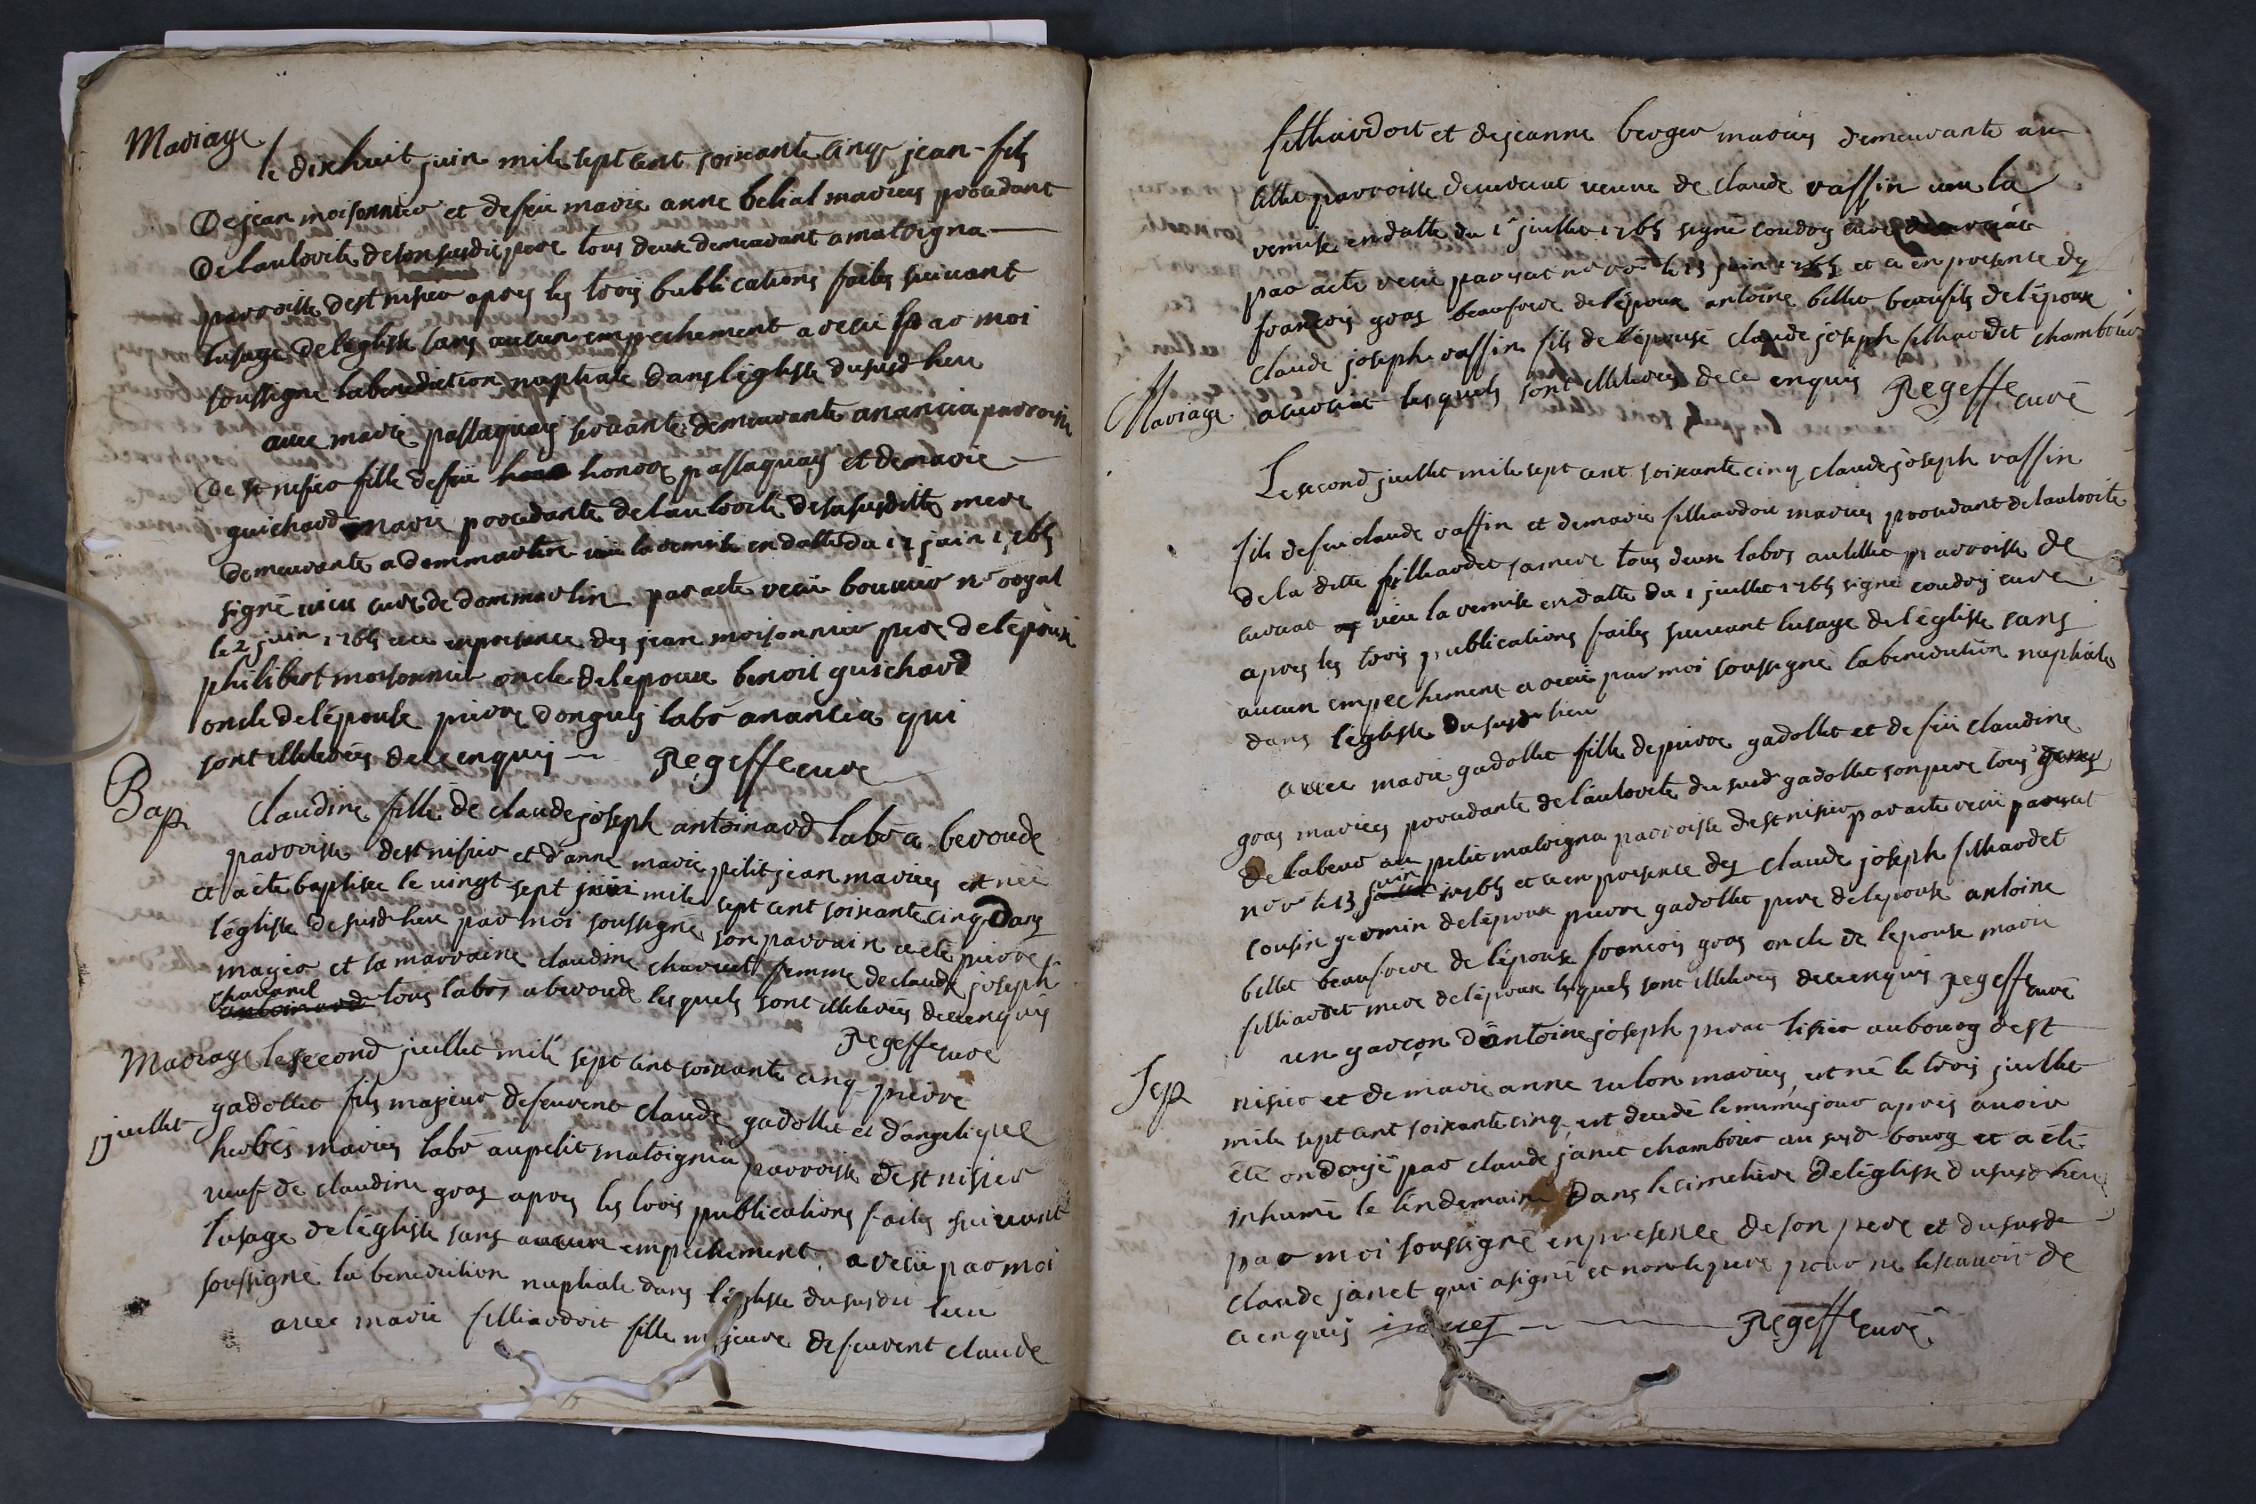 Mariage
le dixhuit juin mile sept cent soixante cinq jean fils
de jean moisonnier et defeu marie anne belial mariees procedant
de lautorité deson susdit pere tous deux demeurant a matoigna
parroisse de st nisier apres les trois bublications faites suivant
lusage de léglise sans aucun empechement a recu par moi
soussigné labenediction nuptiale dans léglise du susd lieu
avec marie passaquay servante demeurante a nancia parroisse
de st nisier fille defeu honore passaquay et de marie
guichard marie procedante de lautorité desasusditte mere
demeurante a dommartin vu la remise en datte du 17 juin 1765
signé curé de dommartin par acte recu bouvier nre royal
le 2 juin 1765 ce en presence des jean moisonnier pere de lépoux
philibert moisonnier oncle delepoux benoit guichard
oncle de lépouse pierre donguy labr a nancia qui
sont illiterés de ce enquis Regeffe curé
Bap
claudine fille de claude joseph antoinard labr a beroude
parroisse de st nisier et d'anne marie petitjean mariees est née
et a été baptisée le vingt sept juin mile sept cent soixante cinq Dans
léglise de susd lieu par moi soussigné son parrain a eté pierre
magier et sa marraine claudine charnel femme de claude joseph
charanel
antoinard tous labrs a beroude lesquels sont illiterés de ce enquis
Regeffe curé
Mariage
le second juillet mile sept cent soixante cinq pierre
juillet
gadollet fils majeur de feuvent claude gadollet et d'angelique
herbés mariees labr au petit matoignia parroisse de st nisier
veuf de claudine gras apres les trois publications faites suivant
lusage de léglise sans aucun empechement, a recu par moi
soussigné la benediction nuptiale dans léglise du susdit lieu
avec marie filliardoit fille majeure de feuvent claude
filliardoit et de jeanne berger mariés demeurante au
tillet parroisse de curciat veuve de claude raffin vu la
remise en datte du 1r juillet 1765 signé coudoy curé
par acte recu par nre ro le 13 juin 1765 et ce en presence des
francois gras beaufrere de lépoux antoine billet beaufils de lépoux
claude joseph raffin fils de lépouse claude joseph filliardet chambrier
a curciat lesquels sont illiterés de ce enquis Regeffe curé
Mariage
Le second juillet mile sept cent soixante cinq claude joseph raffin
fils de feu claude raffin et de marie filliardoit mariees procedant de lautorité
de la ditte filliardet samere tous deux labrs au tillet parroisse de
curciat vu la remise en datte du 1 juillet 1765 signé coudoy curé
apres les trois publications faites suivant lusage de léglise sans
aucun empechement a recu par moi soussigné la benediction nuptiale
dans léglise du susd lieu
avec marie gadollet fille de pierre gadollet et de feu claudine
gras mariees procedante de láutorité du susd gadollet son pere tous
au petit matoigna parroisse de st nisier par acte recu
nre ro le 13 juin 1765 et ce en presence des claude joseph filliardet
cousin germin de lépoux pierre gadollet pere de lepouse antoine
billet beaufrere de lépouse francois gras oncle de lepouse marie
filliardet mere de lépoux lesquels sont illiterés de ce enquis Regeffe curé
un garcon dantoine joseph privat tissier au bourg de st
Sep
nisier et de marie anne rulon mariés, est né le trois juillet
mile sept cent soixante cinq est decedé le meme jour aprés avoir
été ondoyé par claude janet chambrier au susd bourg et a été
inhumé le lendemain Dans le cimetiere de léglise du susd lieu
par moi soussigné en presence de son pere et du susd
claude janet qui a signé et non le pere pour ne le scavoir de
ce enquis Regeffe curé